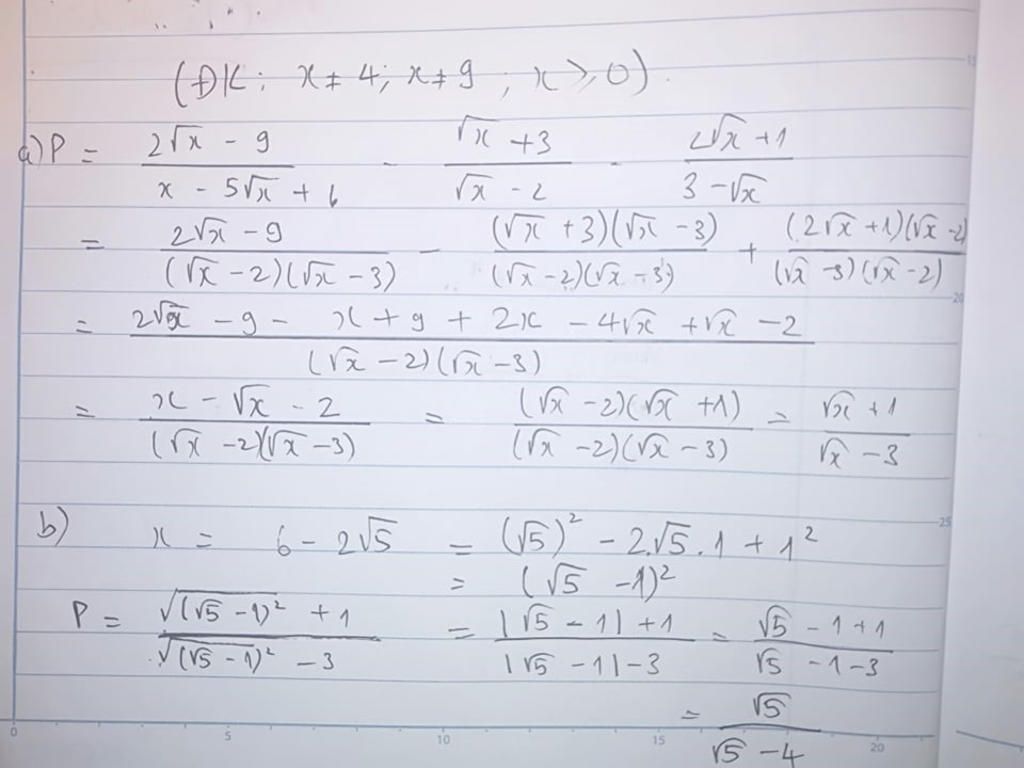 (ĐK: x ≠ 4; x ≠ 9; x ⩾ 0).
a) P = (2√x - 9)/(x - 5√x + 6) - (√x + 3)/(√x - 2) - (2√x + 1)/(3 - √x)
= (2√x - 9)/((√x - 2)(√x - 3)) - ((√x + 3)(√x - 3))/((√x - 2)(√x - 3)) + ((2√x + 1)(√x - 2))/((√x - 3)(√x - 2))
= (2√x - 9 - x + 9 + 2x - 4√x + √x - 2)/((√x - 2)(√x - 3))
= (x - √x - 2)/((√x - 2)(√x - 3)) = ((√x - 2)(√x + 1))/((√x - 2)(√x - 3)) = (√x + 1)/(√x - 3)
b) x = 6 - 2√5 = (√5)² - 2.√5.1 + 1²
= (√5 - 1)²
P = (√(√5 - 1)² + 1)/(√(√5 - 1)² - 3) = (|√5 - 1| + 1)/(|√5 - 1| - 3) = (√5 - 1 + 1)/(√5 - 1 - 3)
= √5/(√5 - 4)
0 5 10 15 20
15
20
25